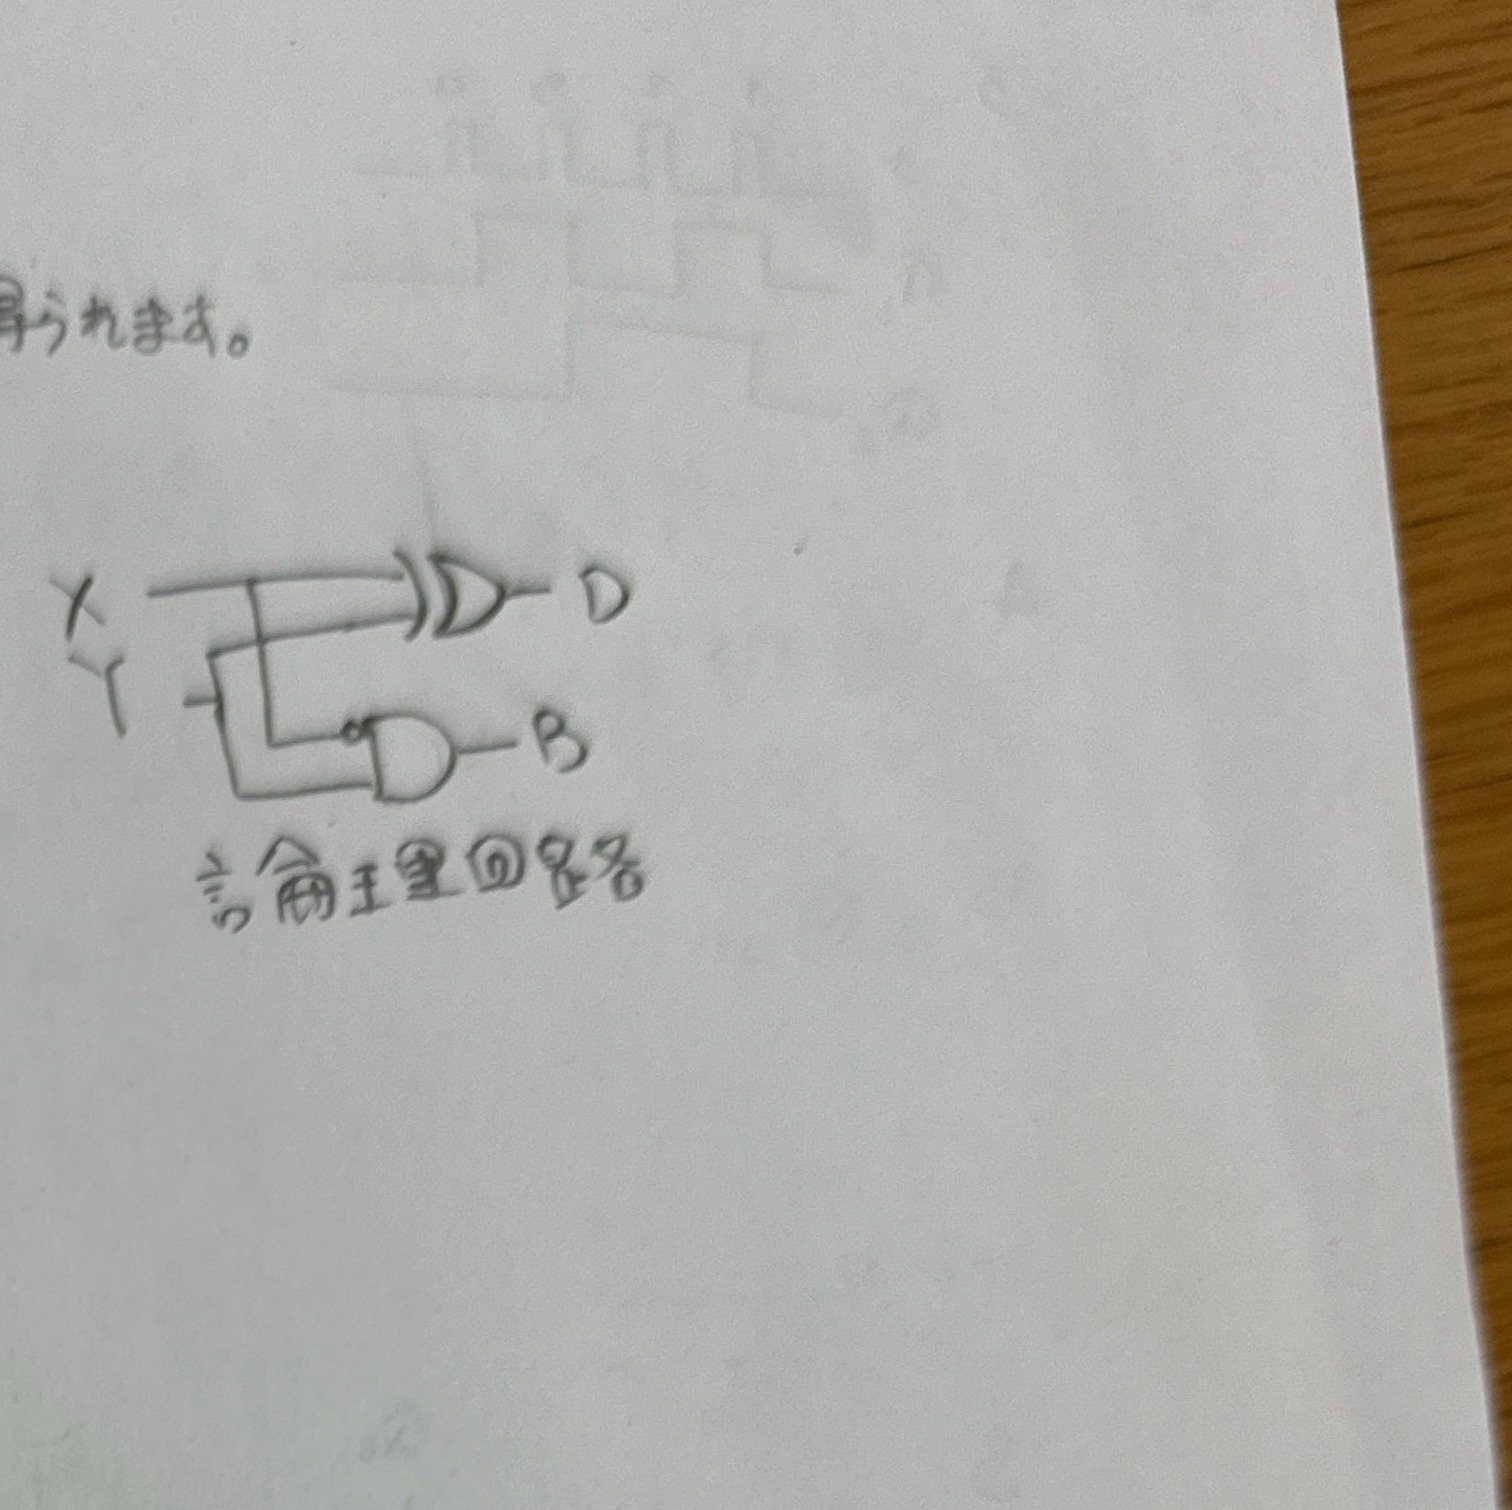 得られます。
X
D
Y
B
論理回路